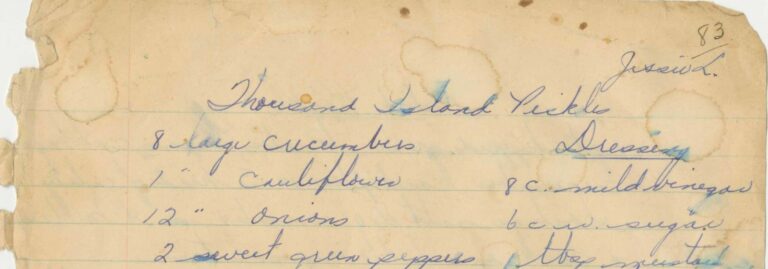 83
Jessie L.
Thousand Island Pickles
8 large cucumbers
1 " cauliflower
12 " onions
2 sweet green peppers
Dressing
8 c. mild vinegar
6 c. w. sugar
1 tbsp mustard